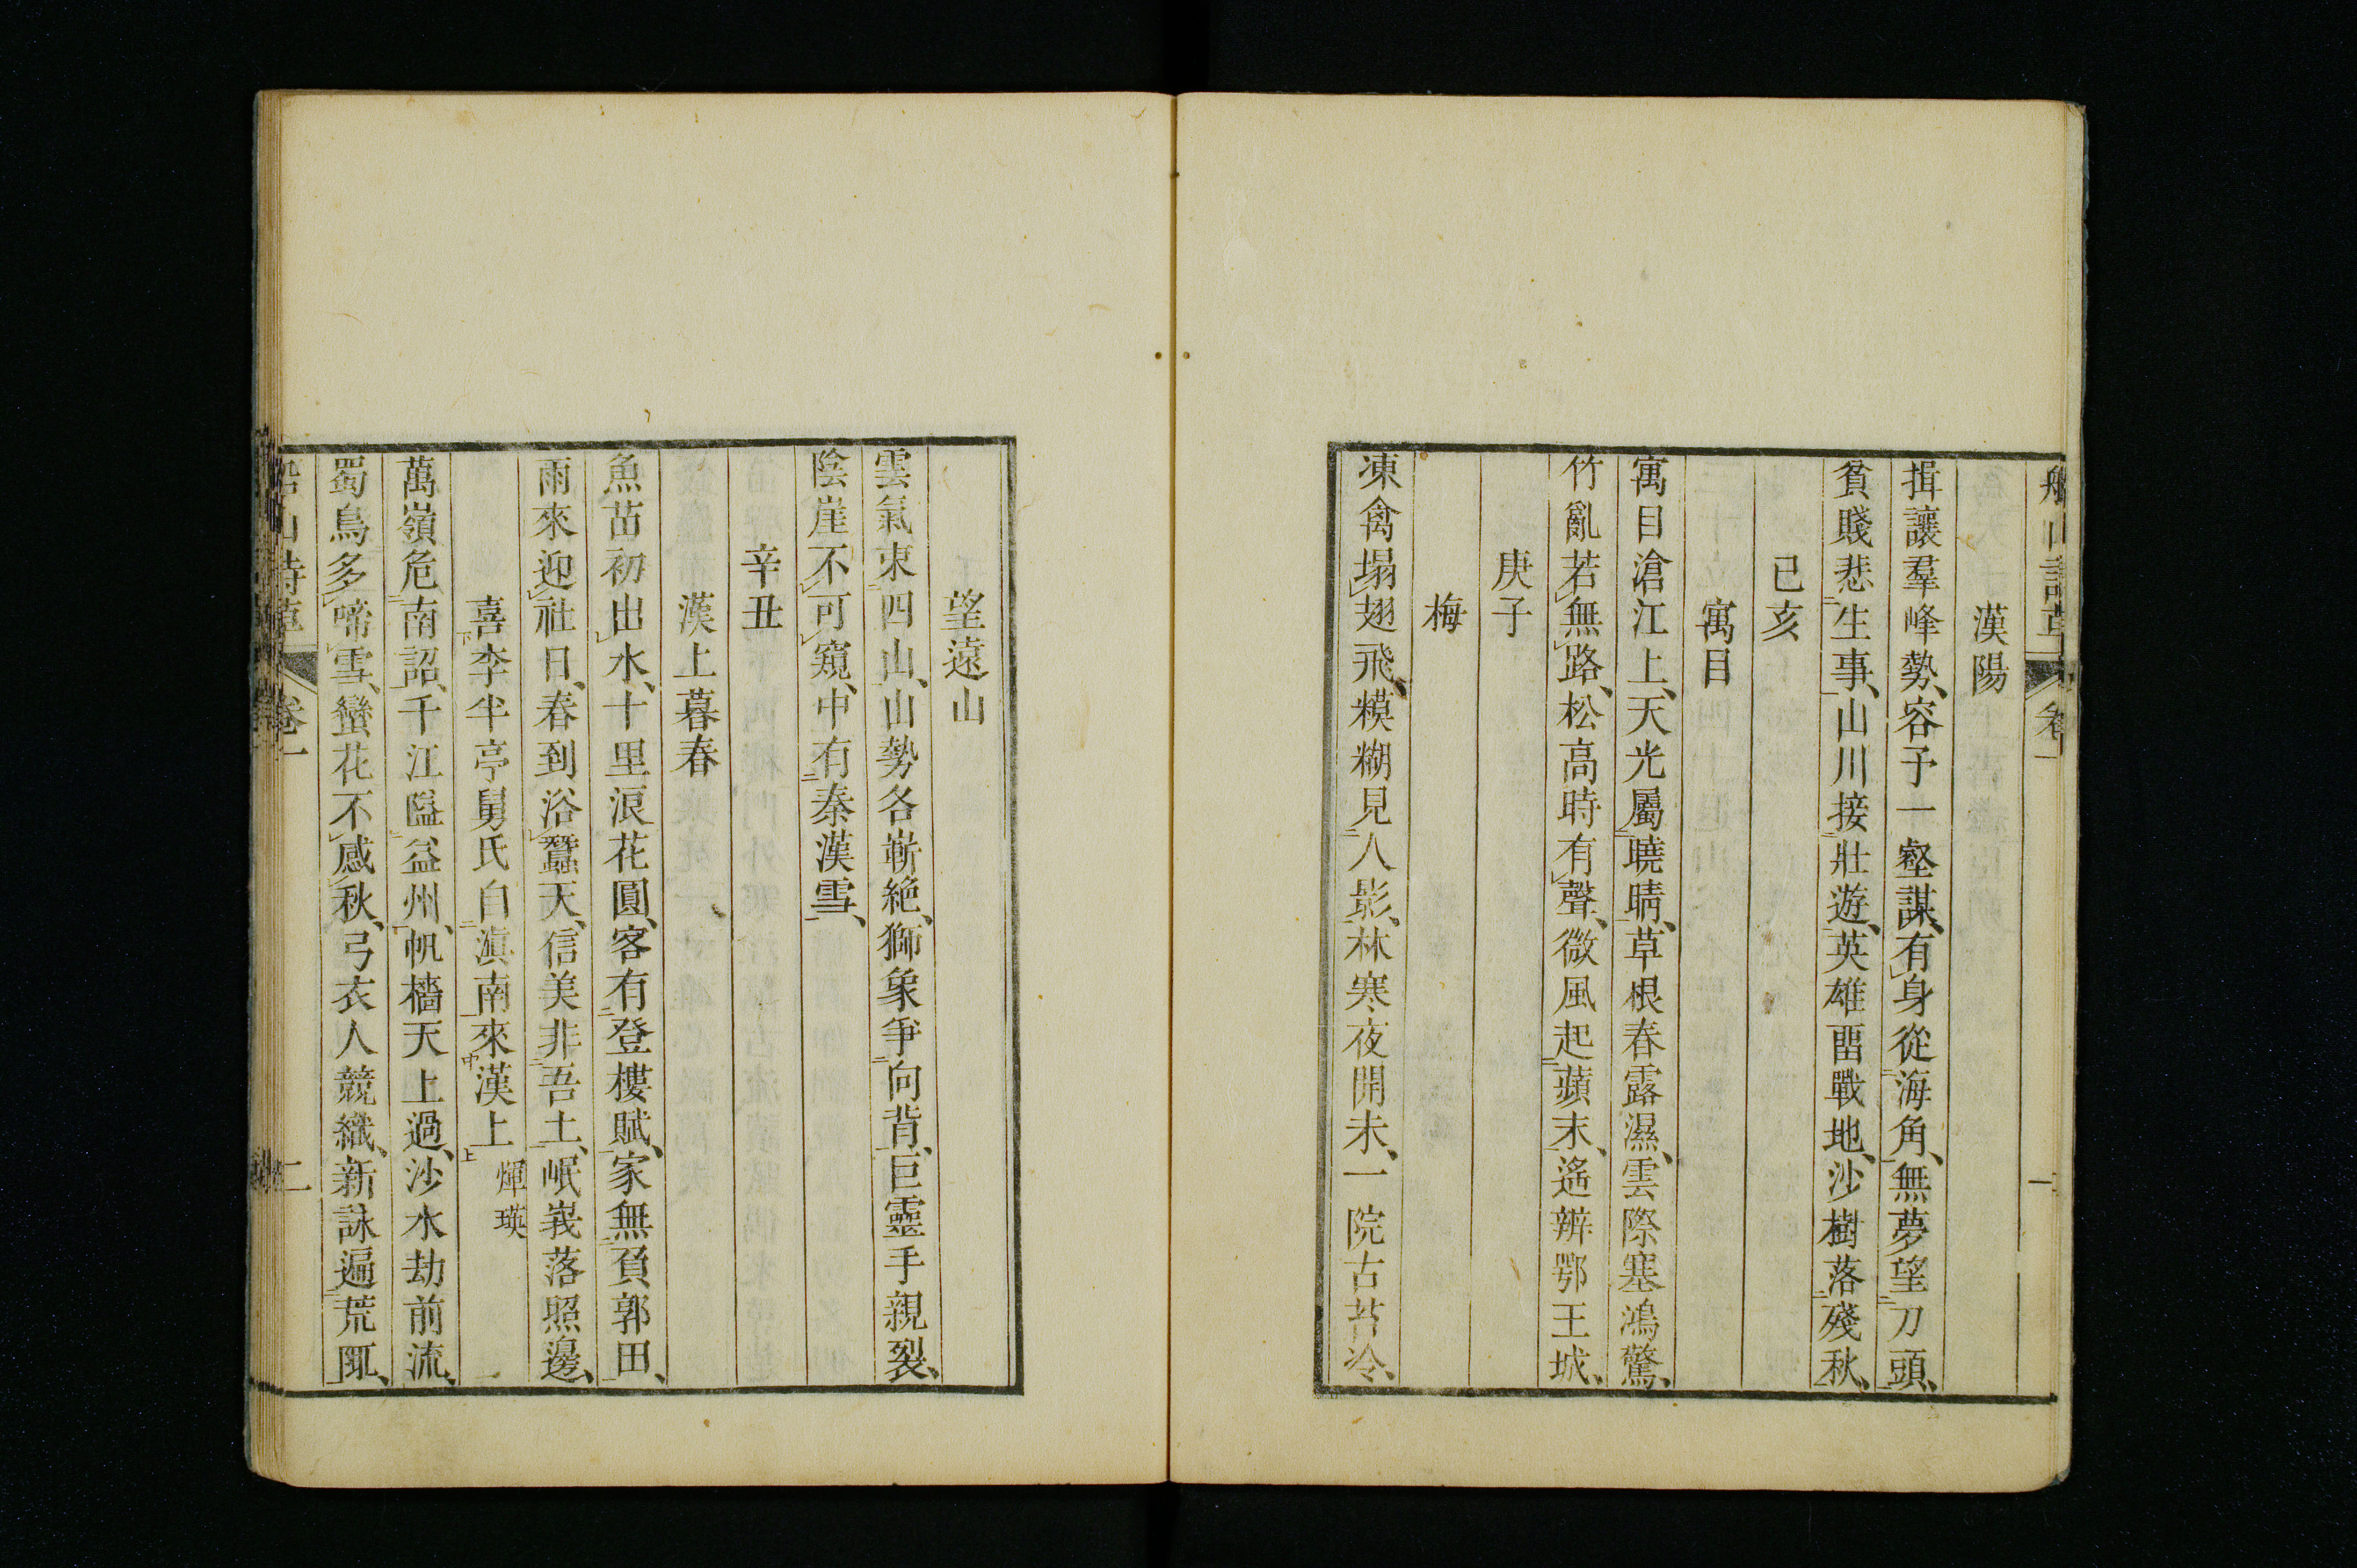 船山詩草 卷一
漢陽
揖讓羣峰勢、容予一壑謀、有身從海角、無夢望刀頭、
貧賤悲生事、山川接壯遊、英雄畱戰地、沙樹落殘秋、
己亥
寓目
寓目滄江上、天光屬曉晴、草根春露濕、雲際塞鴻驚、
竹亂若無路、松高時有聲、微風起蘋末、遙辨鄂王城、
庚子
梅
凍禽塌翅飛、糢糊見人影、林寒夜開未、一院古苔冷、
望遠山
雲氣東四山、山勢各嶄絶、獅象爭向背、巨靈手親裂、
陰崖不可窺、中有秦漢雪、
辛丑
漢上暮春
魚苗初出水、十里浪花圓、客有登樓賦、家無負郭田、
雨來迎社日、春到浴蠶天、信美非吾土、岷峩落照邊、
喜李半亭舅氏自滇南來漢上 煇瑛
萬嶺危南詔、千江隘益州、帆檣天上過、沙水劫前流、
蜀鳥多啼雪、蠻花不感秋、弓衣人競織、新詠遍荒陬、
船山詩草 卷一 二